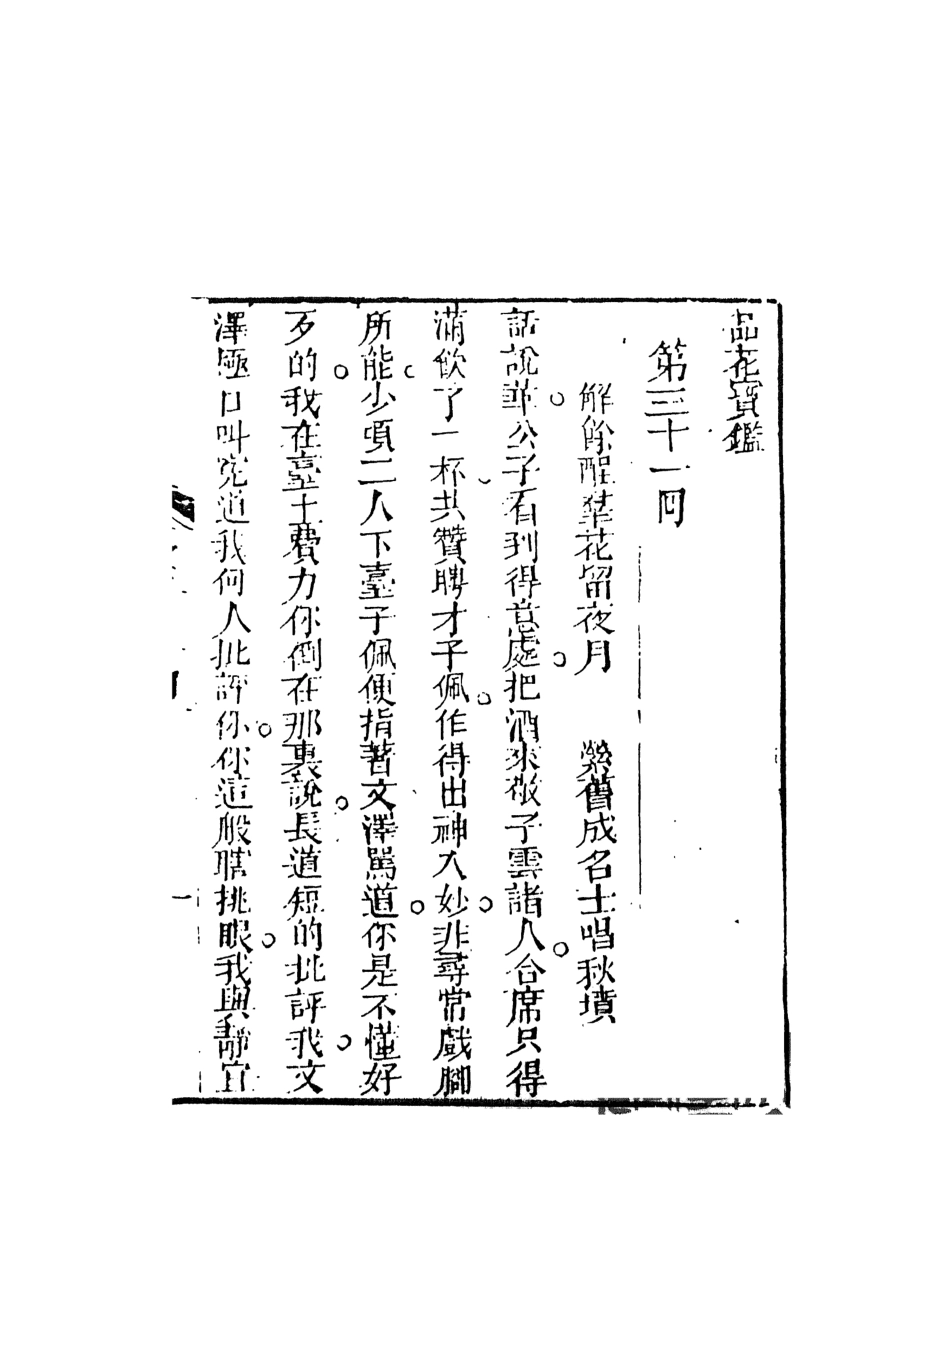 品花寶鑑
第三十一回
解餘酲群花留夜月　縈舊感名士唱秋墳
話說華公子看到得意處。把酒來敬子雲。諸人合席只得
滿飲了一杯。共贊聘才子佩。作得出神入妙。非尋常戲腳
所能。少頃二人下臺。子佩便指著文澤罵道。你是不懂好
歹的。我在臺上費力。你倒在那裏說長道短的批評我。文
澤極口叫寃道。我何人批評你。你這般瞎挑眼。我與靜宜
一